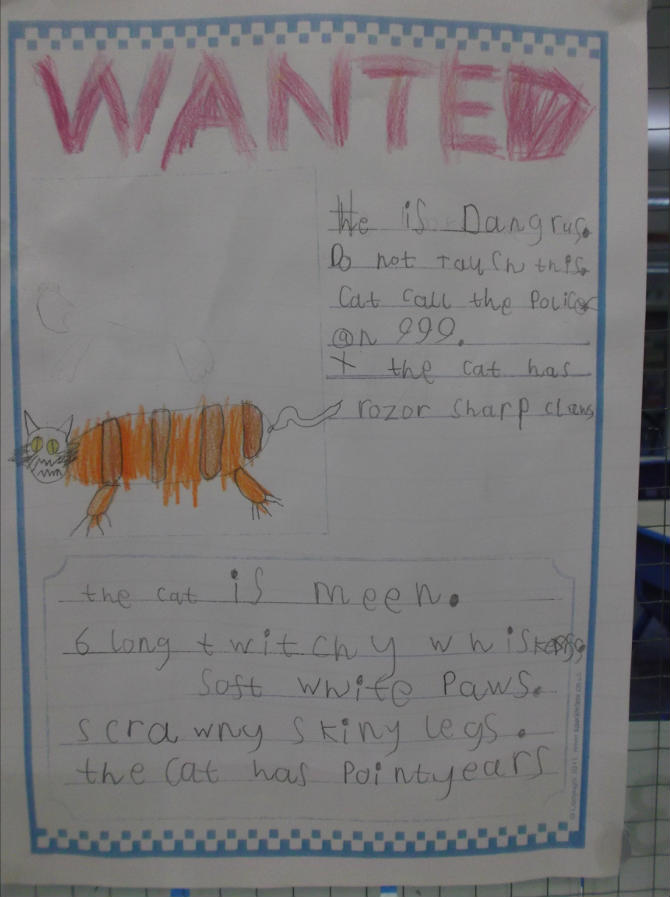 WANTED
He is Dangrus.
Do not tauch this.
Cat call the Police
@n 999.
x the cat has
rozor sharp claws
the cat is meen.
6 long twitchy whiskerse
soft white Paws.
scrawny skiny legs.
the cat has Pointyears